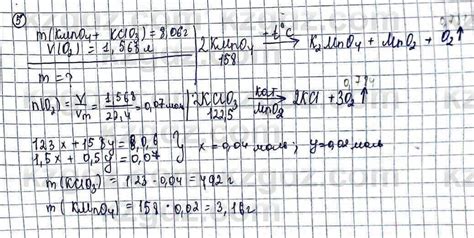 ⑤
m(KMnO₄ + KClO₃) = 8,06г
V(O₂) = 1,568 л
m = ?
2KMnO₄ →t°C K₂MnO₄ + MnO₂ + O₂↑
158
n(O₂) = V/Vm = 1,568/22,4 = 0,07 моль
2KClO₃ →кат MnO₂ 2KCl + 3O₂↑
122,5
123x + 158y = 8,06
1,5x + 0,5y = 0,07
x = 0,04 моль; y = 0,02 моль
m(KClO₃) = 123 · 0,04 = 4,92 г
m(KMnO₄) = 158 · 0,02 = 3,16г